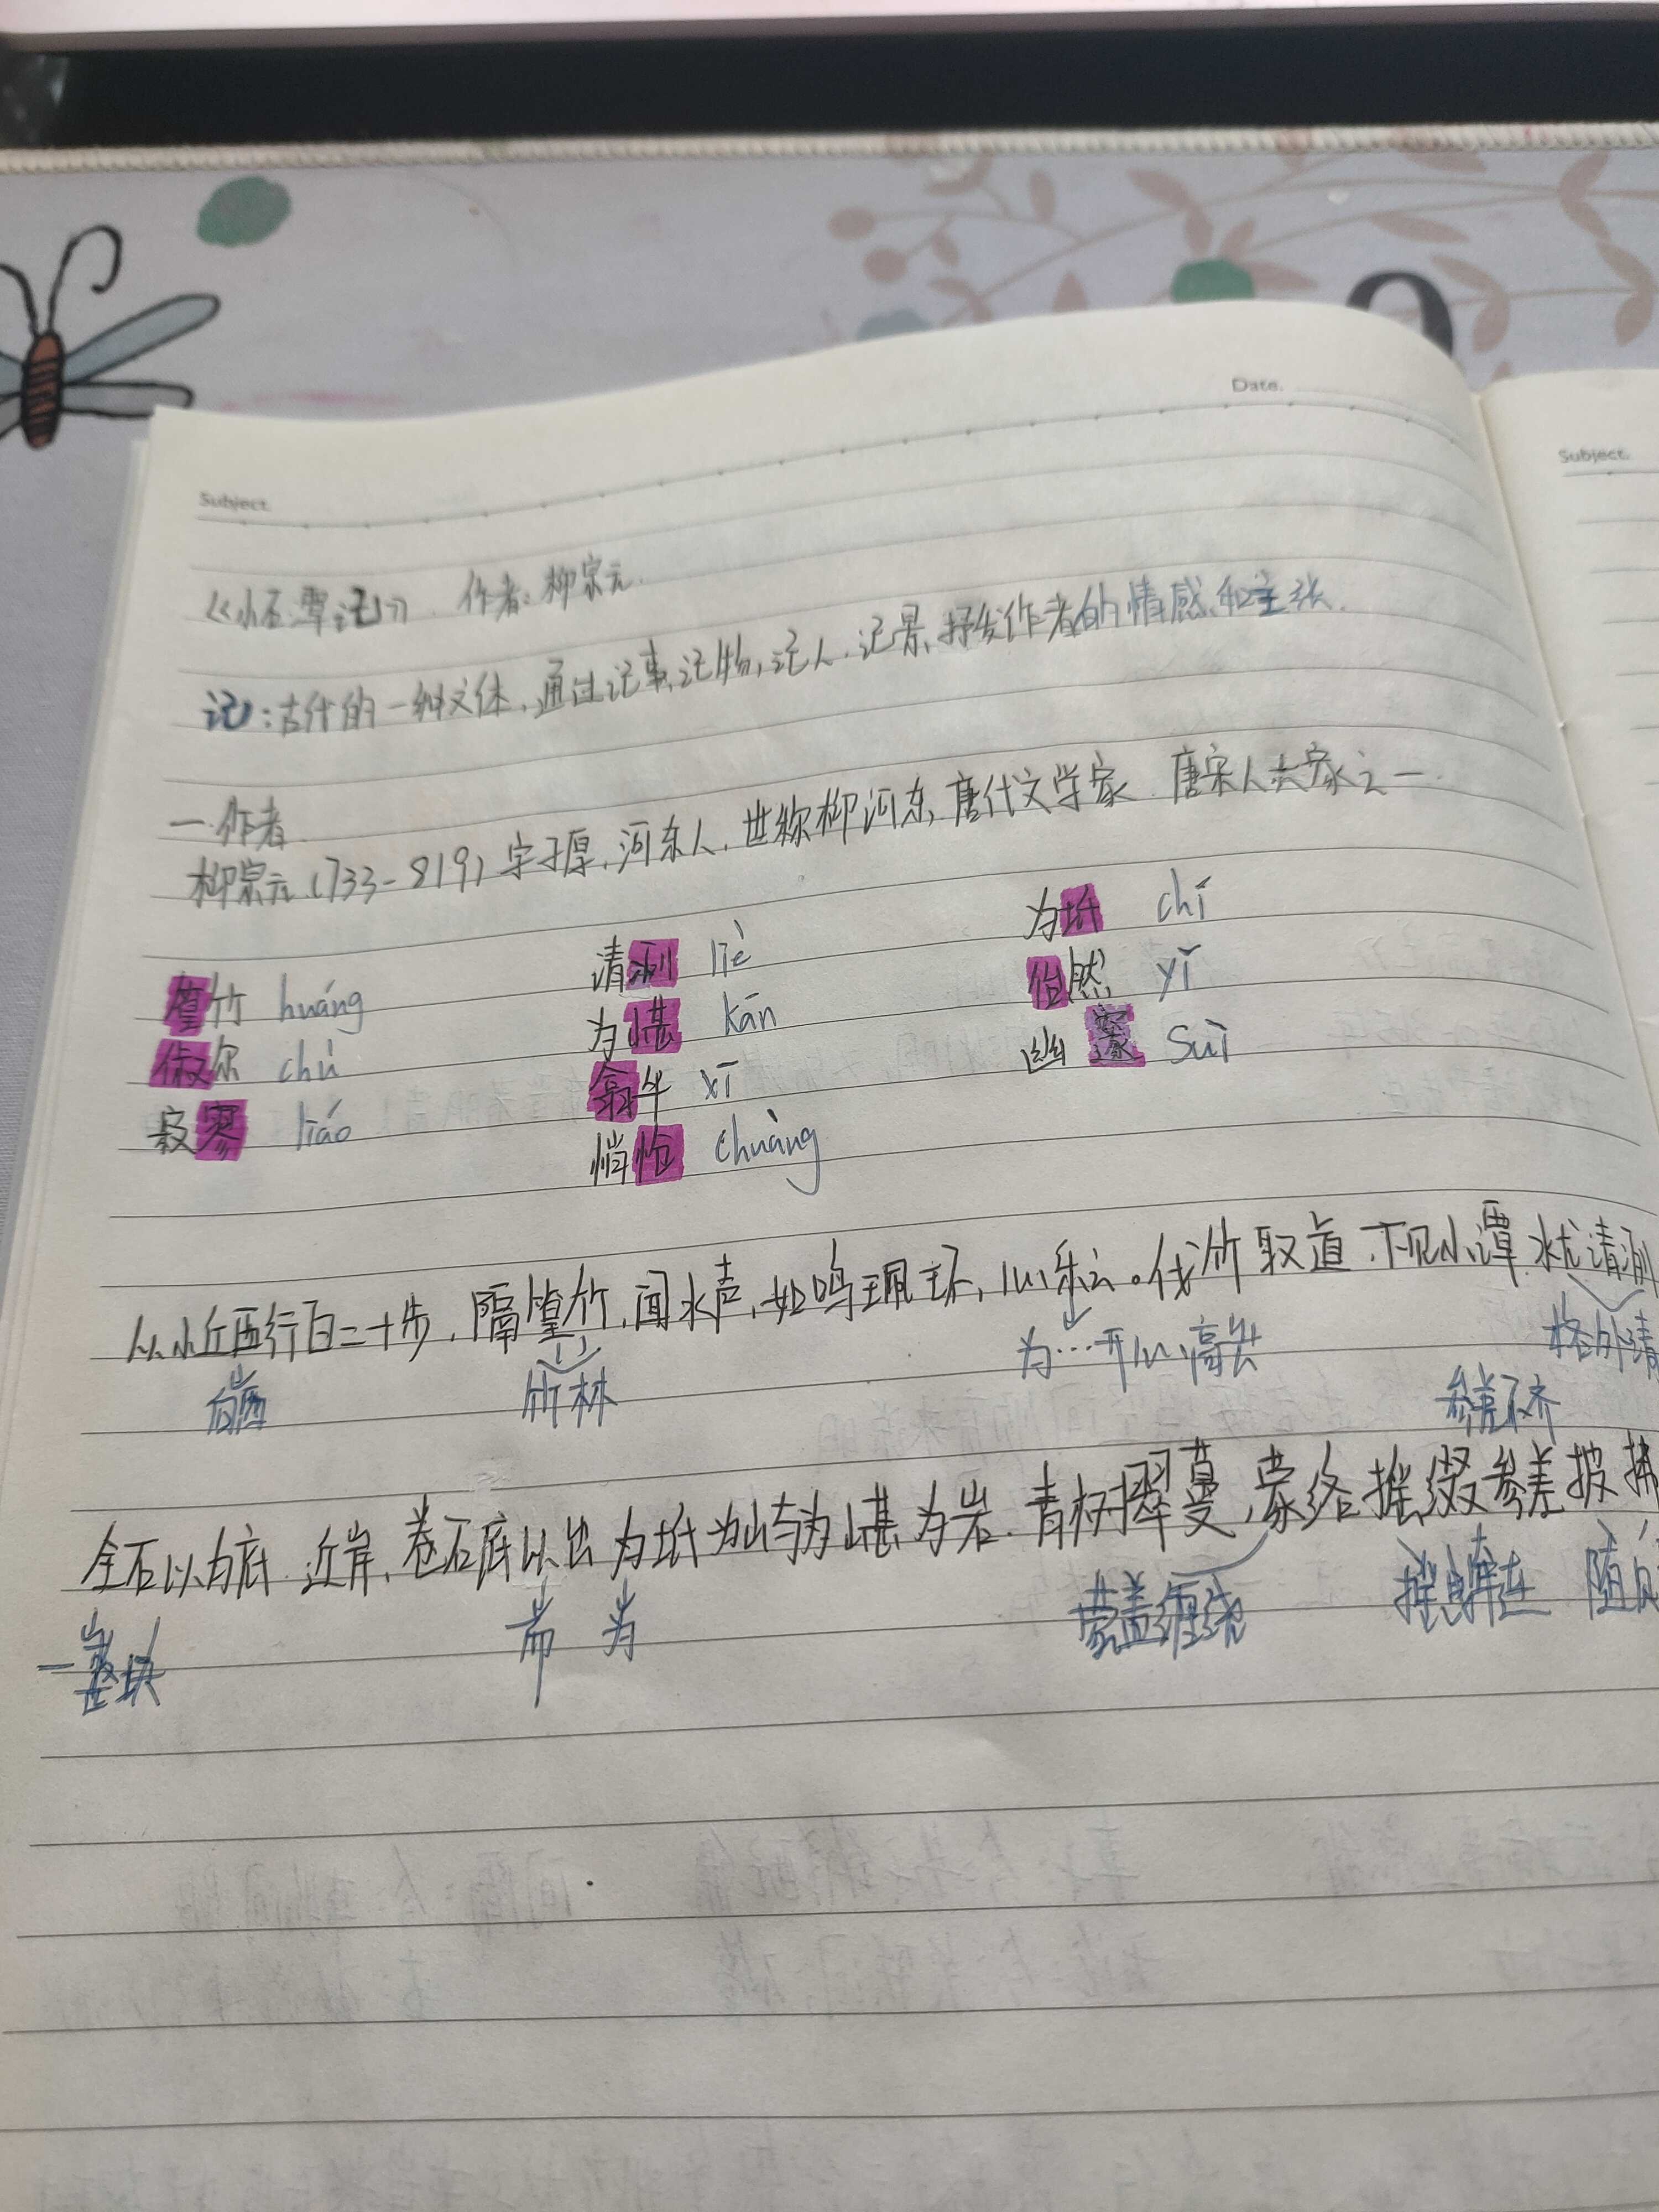 Date.
Subject.
Subject.
《小石潭记》 作者:柳宗元.
记:古代的一种文体,通过记事,记物,记人.记景,抒发作者的情感和主张.
一.作者
柳宗元(733-819)字子厚,河东人,世称柳河东,唐代文学家.唐宋八大家之一.
篁竹 huáng 清冽 liè 为坻 chí
俶尔 chù 为嵁 kān 佁然 yǐ
寂寥 liáo 翕忽 xī 幽邃 suì
悄怆 chuàng
从小丘西行百二十步,隔篁竹,闻水声,如鸣珮环,心乐之。伐竹取道,下见小潭,水尤清冽
向西 竹林 为…开心,高兴 格外清
参差不齐
全石以为底,近岸,卷石底以出为坻为屿为嵁为岩.青树翠蔓,蒙络摇缀参差披拂
一整块 而 为 蒙盖缠绕 摇曳牵连 随风